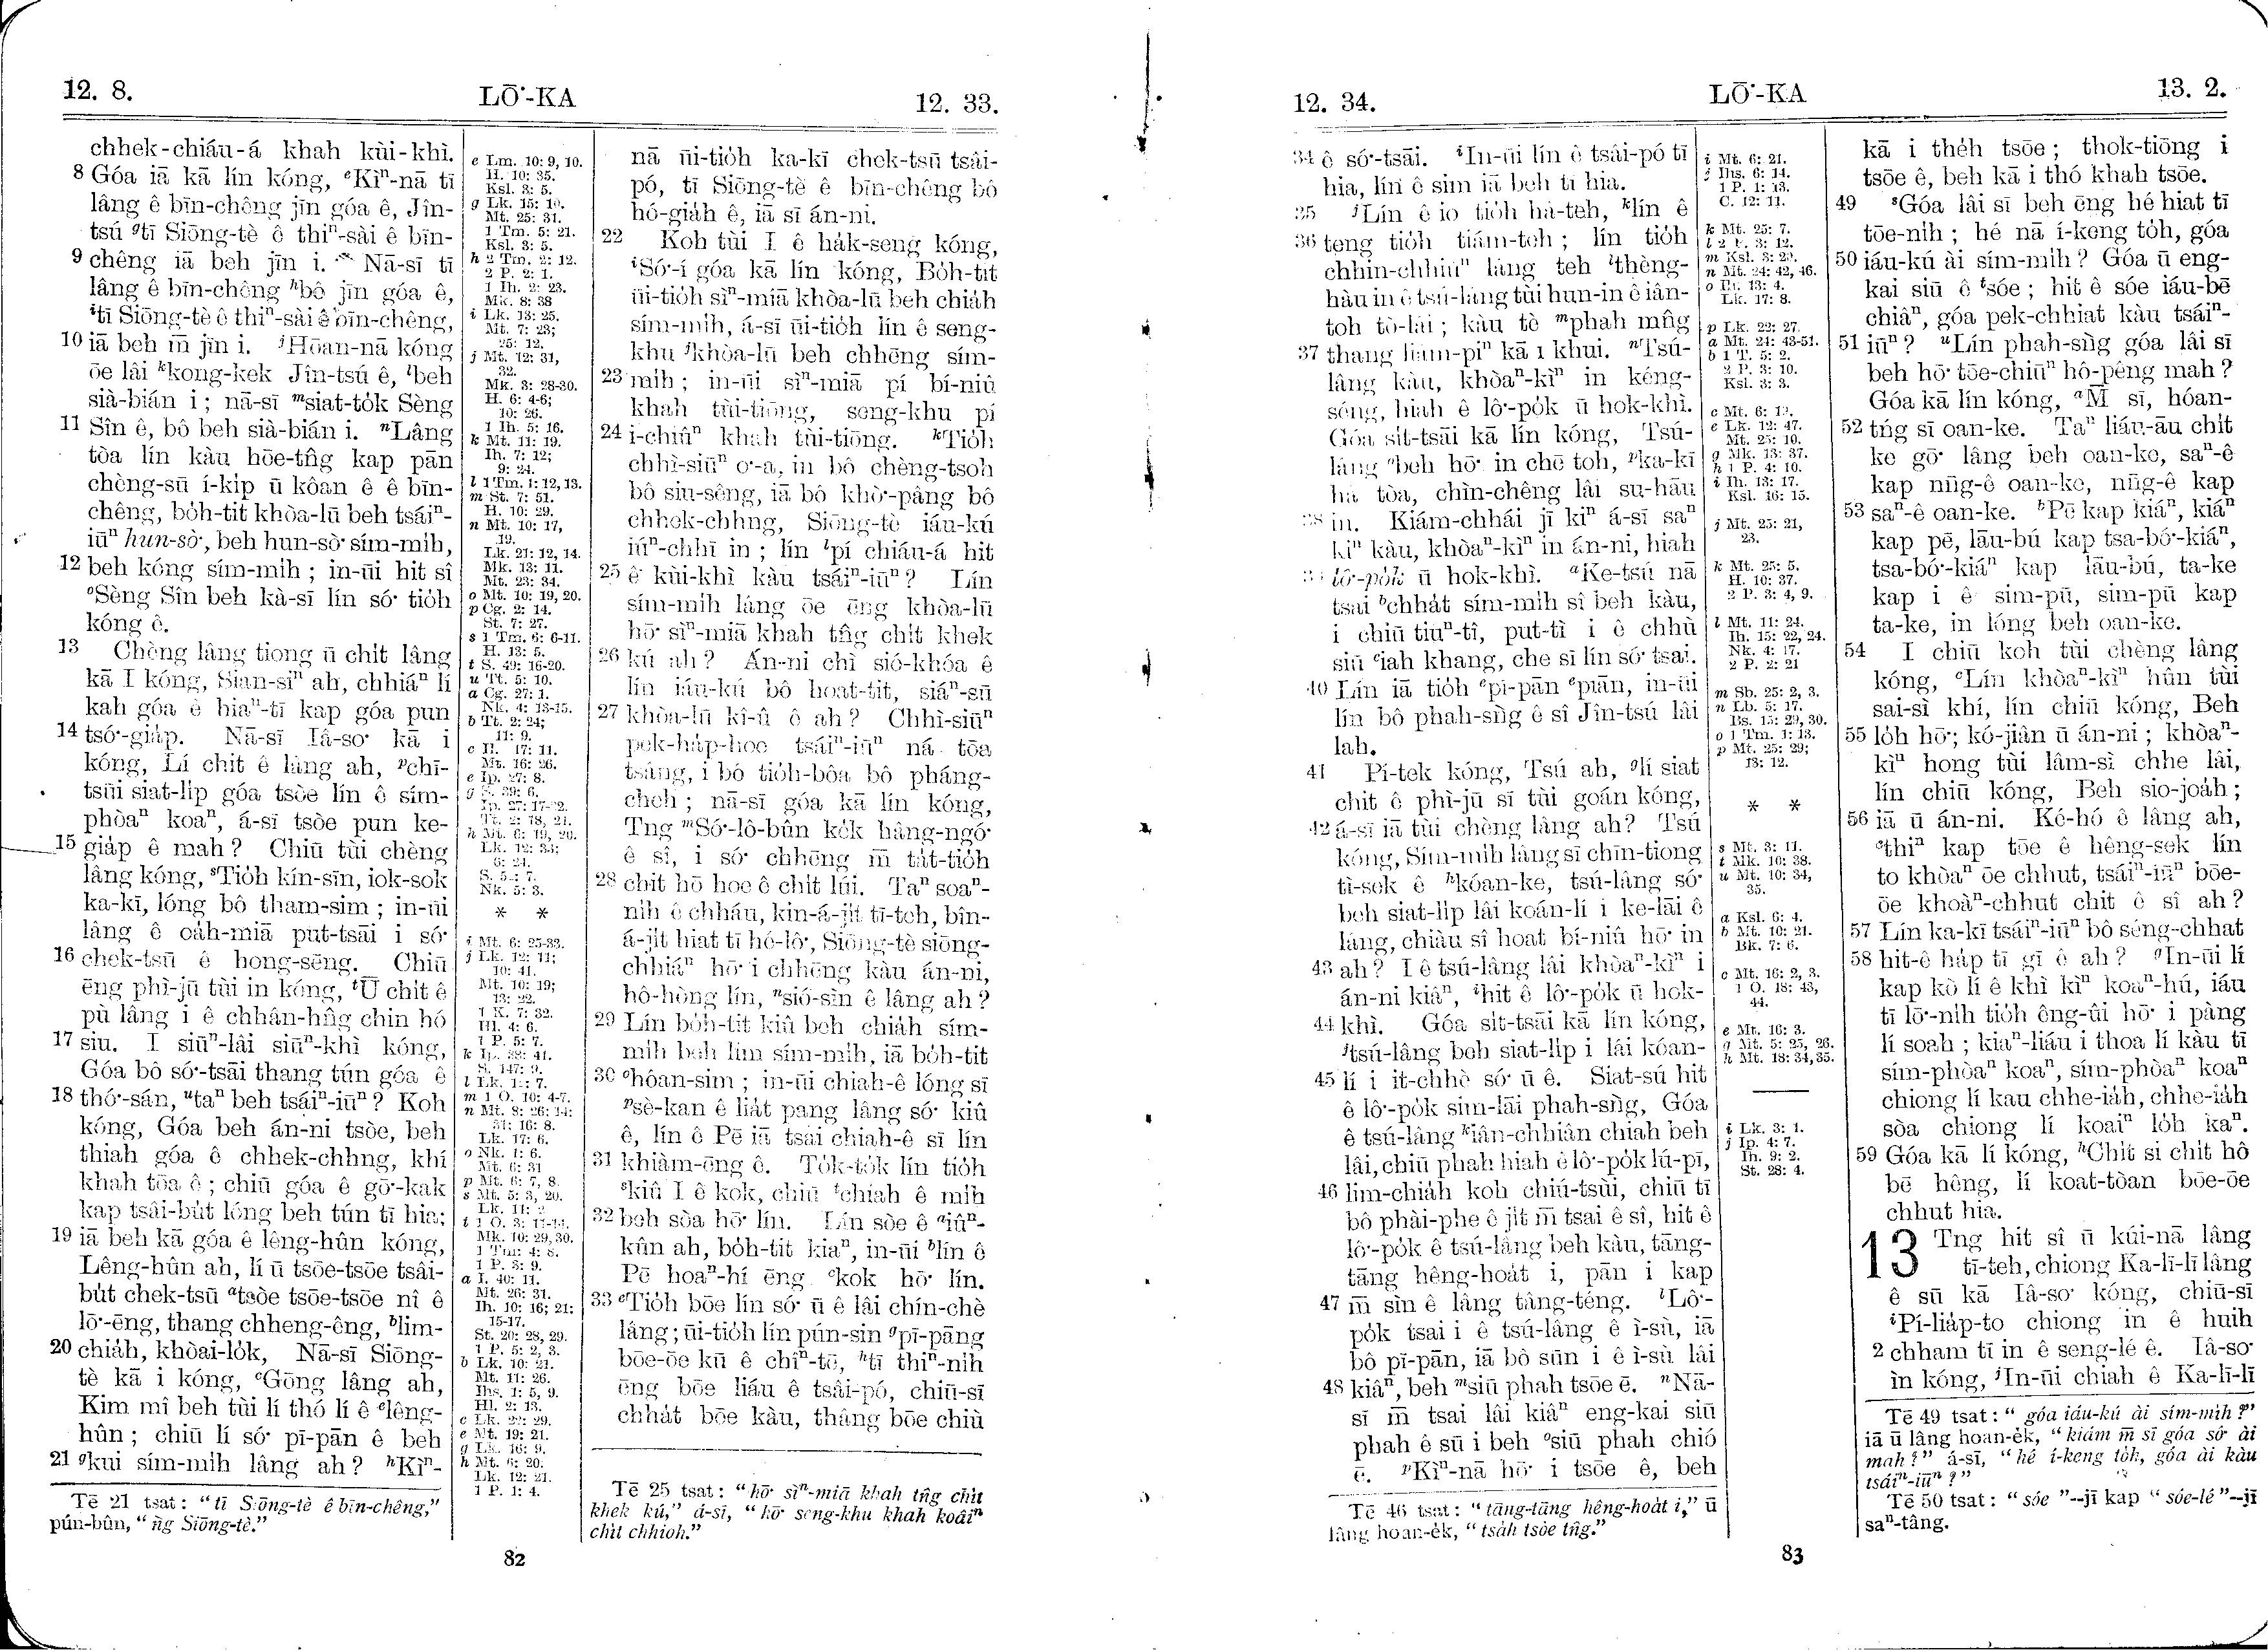 12. 8.
LŌ͘-KA
12. 33.
chhek-chiáu-á khah kùi-khì.
8 Góa iā kā lín kóng, ᵉKìⁿ-nā tī
lâng ê bīn-chêng jīn góa ê, Jîn-
tsú ᵍtī Siōng-tè ê thiⁿ-sài ê bīn-
9 chêng iā beh jīn i. Nā-sī tī
lâng ê bīn-chêng ʰbô jīn góa ê,
ⁱtī Siōng-tè ê thiⁿ-sài ê bīn-chêng,
10 iā beh m̄ jīn i. ʲHōan-nā kóng
ōe lâi ᵏkong-kek Jîn-tsú ê, ˡbeh
sià-bián i; nā-sī ᵐsiat-to̍k Sèng
11 Sîn ê, bô beh sià-bián i. ⁿLâng
tòa lín kàu hōe-tn̂g kap pān
chèng-sū í-ki̍p ū kôan ê ê bīn-
chêng, bo̍h-tit khòa-lū beh tsáiⁿ-
iūⁿ hun-sò͘, beh hun-sò͘ sím-mih,
12 beh kóng sím-mih; in-ūi hit sî
ᵒSèng Sîn beh kà-sī lín só͘ tio̍h
kóng ê.
13 Chèng lâng tiong ū chi̍t lâng
kā I kóng, Sian-siⁿ ah, chhiáⁿ lí
kah góa ê hiaⁿ-tī kap góa pun
14 tsó͘-gia̍p. Nā-sī Iâ-so͘ kā i
kóng, Lí chit ê lâng ah, ᵖchī-
tsūi siat-li̍p góa tsòe lín ê sím-
phòaⁿ koaⁿ, á-sī tsòe pun ke-
15 gia̍p ê mah? Chiū tùi chèng
lâng kóng, ˢTio̍h kín-sīn, iok-sok
ka-kī, lóng bô tham-sim; in-ūi
lâng ê oa̍h-miā put-tsāi i só͘
16 chek-tsū ê hong-sēng. Chiū
ēng phì-jū tùi in kóng, ᵗŪ chi̍t ê
pù lâng i ê chhân-hn̂g chin hó
17 siu. I siūⁿ-lâi siūⁿ-khì kóng,
Góa bô só͘-tsāi thang tún góa ê
18 thó͘-sán, ᵘtaⁿ beh tsáiⁿ-iūⁿ? Koh
kóng, Góa beh án-ni tsòe, beh
thiah góa ê chhek-chhng, khí
khah tōa ê; chiū góa ê gō͘-kak
kap tsâi-bu̍t lóng beh tún tī hia;
19 iā beh kā góa ê lêng-hûn kóng,
Lêng-hûn ah, lí ū tsōe-tsōe tsâi-
bu̍t chek-tsū ᵃtsòe tsōe-tsōe nî ê
lō͘-ēng, thang chheng-êng, ᵇlim-
20 chia̍h, khòai-lo̍k, Nā-sī Siōng-
tè kā i kóng, ᶜGōng lâng ah,
Kim mî beh tùi lí thó lí ê ᵉlêng-
hûn; chiū lí só͘ pī-pān ê beh
21 ᵍkui sím-mi̍h lâng ah? ʰKìⁿ-
Tē 21 tsat: “tī Siōng-tè ê bīn-chêng,”
pún-bûn, “ǹg Siōng-tè.”
e Lm. 10: 9, 10.
H. 10: 35.
Ksl. 3: 5.
g Lk. 15: 10.
Mt. 25: 31.
1 Tm. 5: 21.
Ksl. 3: 5.
h 2 Tm. 2: 12.
2 P. 2: 1.
1 Ih. 2: 23.
Mk. 8: 38
i Lk. 13: 25.
Mt. 7: 23;
25: 12.
j Mt. 12: 31,
32.
Mk. 3: 28-30.
H. 6: 4-6;
10: 26.
1 Ih. 5: 16.
k Mt. 11: 19.
Ih. 7: 12;
9: 24.
l 1 Tm. 1: 12, 13.
m St. 7: 51.
H. 10: 29.
n Mt. 10: 17,
19.
Lk. 21: 12, 14.
Mk. 13: 11.
Mt. 23: 34.
o Mt. 10: 19, 20.
p Cg. 2: 14.
St. 7: 27.
s 1 Tm. 6: 6-11.
H. 13: 5.
t S. 49: 16-20.
u Tt. 5: 10.
a Cg. 27: 1.
Nk. 4: 13-15.
b Tt. 2: 24;
11: 9.
Mt. 16: 26.
e Ip. 27: 8.
Lk. 12: 33;
Nk. 5: 3.
* *
i Mt. 6: 25-33.
j Lk. 12: 11;
10: 41.
Mt. 10: 19;
13: 22.
1 K. 7: 32.
Hl. 4: 6.
1 P. 5: 7.
k Ip. 38: 41.
S. 147: 9.
m 1 O. 10: 4-7.
Lk. 17: 6.
o Nk. 1: 6.
Mt. 6: 31
p Mt. 6: 7, 8.
s Mt. 5: 3, 20.
Mk. 10: 29, 30.
1 Tm: 4: 8.
1 P. 3: 9.
a I. 40: 11.
Mt. 26: 31.
Ih. 10: 16; 21:
15-17.
St. 20: 28, 29.
1 P. 5: 2, 3.
b Lk. 10: 21.
Mt. 11: 26.
Ihs. 1: 5, 9.
Hl. 2: 13.
c Lk. 22: 29.
e Mt. 19: 21.
g Lk. 16: 9.
h Mt. 6: 20.
Lk. 12: 21.
1 P. 1: 4.
nā ūi-tio̍h ka-kī chek-tsū tsâi-
pó, tī Siōng-tè ê bīn-chêng bô
hó-gia̍h ê, iā sī án-ni.
22 Koh tùi I ê ha̍k-seng kóng,
ⁱSó͘-í góa kā lín kóng, Bo̍h-tit
ūi-tio̍h sìⁿ-miā khòa-lū beh chia̍h
sím-mih, á-sī ūi-tio̍h lín ê seng-
khu ʲkhòa-lū beh chhēng sím-
23 mih; in-ūi sìⁿ-miā pí bí-niû
khah tùi-tiōng, seng-khu pí
24 i-chiûⁿ khah tùi-tiōng. ᵏTio̍h
chhì-siūⁿ o͘-a, in bô chèng-tsoh
bô siu-sêng, iā bô khò͘-pâng bô
chhek-chhng, Siōng-tè iáu-kú
iúⁿ-chhī in; lín ˡpí chiáu-á hit
25 ê kùi-khì kàu tsáiⁿ-iūⁿ? Lín
sím-mih lâng ōe ēng khòa-lū
hō͘ sìⁿ-miā khah tn̂g chi̍t khek
26 kú ah? Án-ni chì sió-khóa ê
lín iáu-kú bô hoat-tit, siáⁿ-sū
27 khòa-lū kî-û ê ah? Chhì-siūⁿ
pek-ha̍p-hoe tsáiⁿ-iūⁿ ná tōa
tsâng, i bô tio̍h-bôa bô pháng-
cheh; nā-sī góa kā lín kóng,
Tng ᵐSó͘-lô-bûn ke̍k hâng-ngó͘
ê sî, i só͘ chhēng m̄ ta̍t-tio̍h
28 chi̍t hō hoe ê chi̍t lúi. Taⁿ soaⁿ-
nih ê chháu, kin-á-ji̍t tī-teh, bîn-
á-ji̍t hiat tī hé-lô͘, Siōng-tè siōng-
chhiáⁿ hō͘ i chhēng kàu án-ni,
hô-hòng lín, ⁿsió-sìn ê lâng ah?
29 Lín bo̍h-tit kiû beh chia̍h sím-
mih beh lim sím-mih, iā bo̍h-tit
30 ᵒhôan-sim; in-ūi chiah-ê lóng sī
ᵖsè-kan ê lia̍t pang lâng só͘ kiû
ê, lín ê Pē iā tsai chiah-ê sī lín
31 khiàm-ēng ê. To̍k-to̍k lín tio̍h
ˢkiû I ê kok, chiū ᵗchiah ê mi̍h
32 beh sòa hō͘ lín. Lín sòe ê ᵃiûⁿ-
kûn ah, bo̍h-tit kiaⁿ, in-ūi ᵇlín ê
Pē hoaⁿ-hí ēng ᶜkok hō͘ lín.
33 ᵉTio̍h bōe lín só͘ ū ê lâi chín-chè
lâng; ūi-tio̍h lín pún-sin ᵍpī-pāng
bōe-ōe kū ê chîⁿ-tē, ʰtī thiⁿ-nih
ēng bōe liáu ê tsâi-pó, chiū-sī
chha̍t bōe kàu, thâng bōe chiù
Tē 25 tsat: “hō͘ sìⁿ-miā khah tn̂g chi̍t
khek kú,” á-sī, “hō͘ seng-khu khah koâiⁿ
chi̍t chhioh.”
82
12. 34.
LŌ͘-KA
13. 2.
34 ê só͘-tsāi. ⁱIn-ūi lín ê tsâi-pó tī
hia, lín ê sim iā beh tī hia.
35 ʲLín ê io tio̍h hâ-teh, ᵏlín ê
36 teng tio̍h tiám-toh; lín tio̍h
chhin-chhiūⁿ lâng teh ˡthèng-
hāu in ê tsú-lâng tùi hun-in ê iân-
toh tò-lâi; kàu tè ᵐphah mn̂g
thang liâm-piⁿ kā i khui. ⁿTsú-
37 lâng kàu, khòaⁿ-kìⁿ in kéng-
séng, hiah ê lô͘-po̍k ū hok-khì.
Góa si̍t-tsāi kā lín kóng, Tsú-
lâng ᵒbeh hō͘ in chē toh, ᵖka-kī
hâ tòa, chìn-chêng lâi su-hāu
38 in. Kiám-chhái jī kiⁿ á-sī saⁿ
kiⁿ kàu, khòaⁿ-kìⁿ in án-ni, hiah
39 lô͘-po̍k ū hok-khì. ᵃKe-tsú nā
tsai ᵇchha̍t sím-mih sî beh kàu,
i chiū tiuⁿ-tî, put-tì i ê chhù
siū ᶜiah khang, che sī lín só͘ tsai.
40 Lín iā tio̍h ᵉpī-pān ᵉpiān, in-ūi
lín bô phah-sǹg ê sî Jîn-tsú lâi
lah.
41 Pí-tek kóng, Tsú ah, ᵍlí siat
chit ê phì-jū sī tùi goán kóng,
42 á-sī iā tùi chèng lâng ah? Tsú
kóng, Sím-mih lâng sī chīn-tiong
tì-sek ê ʰkóan-ke, tsú-lâng só͘
beh siat-li̍p lâi koán-lí i ke-lāi ê
lâng, chiàu sî hoat bí-niû hō͘ in
43 ah? I ê tsú-lâng lâi khòaⁿ-kìⁿ i
án-ni kiâⁿ, ⁱhit ê lô͘-po̍k ū hok-
44 khì. Góa si̍t-tsāi kā lín kóng,
ʲtsú-lâng beh siat-li̍p i lâi kóan-
45 lí i it-chhè só͘ ū ê. Siat-sú hit
ê lô͘-po̍k sim-lāi phah-sǹg, Góa
ê tsú-lâng ᵏiân-chhiân chiah beh
lâi, chiū phah hiah ê lô͘-po̍k lú-pī,
46 lim-chia̍h koh chiú-tsùi, chiū tī
bô phài-phe ê ji̍t m̄ tsai ê sî, hit ê
lô͘-po̍k ê tsú-lâng beh kàu, tāng-
tāng hêng-hoa̍t i, pān i kap
47 m̄ sìn ê lâng tâng-téng. ˡLô͘-
po̍k tsai i ê tsú-lâng ê ì-sù, iā
bô pī-pān, iā bô sūn i ê ì-sù lâi
48 kiâⁿ, beh ᵐsiū phah tsōe ē. ⁿNā-
sī m̄ tsai lâi kiâⁿ eng-kai siū
phah ê sū i beh ᵒsiū phah chió
ē. ᵖKìⁿ-nā hō͘ i tsōe ê, beh
Tē 46 tsat: “tāng-tāng hêng-hoa̍t i,” ū
lâng hoan-e̍k, “tsa̍h tsòe tn̄g.”
i Mt. 6: 21.
j Ihs. 6: 14.
1 P. 1: 13.
C. 12: 11.
k Mt. 25: 7.
l 2 P. 3: 12.
m Ksl. 3: 20.
n Mt. 24: 42, 46.
o Ih. 13: 4.
Lk. 17: 8.
p Lk. 22: 27.
a Mt. 24: 43-51.
b 1 T. 5: 2.
2 P. 3: 10.
Ksl. 3: 3.
c Mt. 6: 19.
e Lk. 12: 47.
Mt. 25: 10.
g Mk. 13: 37.
h 1 P. 4: 10.
i Ih. 13: 17.
Ksl. 16: 15.
j Mt. 25: 21,
23.
k Mt. 25: 5.
H. 10: 37.
2 P. 3: 4, 9.
l Mt. 11: 24.
Ih. 15: 22, 24.
Nk. 4: 17.
2 P. 2: 21
m Sb. 25: 2, 3.
n Lb. 5: 17.
Bs. 15: 29, 30.
o 1 Tm. 1: 13.
p Mt. 25: 29;
13: 12.
* *
s Mt. 3: 11.
t Mk. 10: 38.
u Mt. 10: 34,
35.
a Ksl. 6: 4.
b Mt. 10: 21.
Bk. 7: 6.
c Mt. 16: 2, 3.
1 O. 18: 43,
44.
e Mt. 16: 3.
g Mt. 5: 25, 26.
h Mt. 18: 34, 35.
i Lk. 3: 1.
j Ip. 4: 7.
Ih. 9: 2.
St. 28: 4.
kā i the̍h tsōe; thok-tiōng i
tsōe ê, beh kā i thó khah tsōe.
49 ˢGóa lâi sī beh ēng hé hiat tī
tōe-nih; hé nā í-keng to̍h, góa
50 iáu-kú ài sím-mih? Góa ū eng-
kai siū ê ᵗsóe; hit ê sóe iáu-bē
chiâⁿ, góa pek-chhiat kàu tsáiⁿ-
51 iūⁿ? ᵘLín phah-sǹg góa lâi sī
beh hō͘ tōe-chiūⁿ hô-pêng mah?
Góa kā lín kóng, ᵃM̄ sī, hóan-
52 tńg sī oan-ke. Taⁿ liáu-āu chi̍t
ke gō͘ lâng beh oan-ke, saⁿ-ê
kap nn̄g-ê oan-ke, nn̄g-ê kap
53 saⁿ-ê oan-ke. ᵇPē kap kiáⁿ, kiáⁿ
kap pē, lāu-bú kap tsa-bó͘-kiáⁿ,
tsa-bó͘-kiáⁿ kap lāu-bú, ta-ke
kap i ê sim-pū, sim-pū kap
ta-ke, in lóng beh oan-ke.
54 I chiū koh tùi chèng lâng
kóng, ᶜLín khòaⁿ-kìⁿ hûn tùi
sai-sì khí, lín chiū kóng, Beh
55 lo̍h hō͘; kó-jiân ū án-ni; khòaⁿ-
kìⁿ hong tùi lâm-sì chhe lâi,
lín chiū kóng, Beh sio-joa̍h;
56 iā ū án-ni. Ké-hó ê lâng ah,
ᵉthiⁿ kap tōe ê hêng-sek lín
to khòaⁿ ōe chhut, tsáiⁿ-iūⁿ bōe-
ōe khoàⁿ-chhut chit ê sî ah?
57 Lín ka-kī tsáiⁿ-iūⁿ bô séng-chhat
58 hit-ê ha̍p tī gī ê ah? ᵍIn-ūi lí
kap kò lí ê khì kìⁿ koaⁿ-hú, iáu
tī lō͘-nih tio̍h êng-ûi hō͘ i pàng
lí soah; kiaⁿ-liáu i thoa lí kàu tī
sím-phòaⁿ koaⁿ, sím-phòaⁿ koaⁿ
chiong lí kau chhe-ia̍h, chhe-ia̍h
sòa chiong lí koaiⁿ lo̍h kaⁿ.
59 Góa kā lí kóng, ʰChi̍t si chi̍t hô
bē hêng, lí koat-tòan bōe-ōe
chhut hia.
13 Tng hit sî ū kúi-nā lâng
tī-teh, chiong Ka-lī-lī lâng
ê sū kā Iâ-so͘ kóng, chiū-sī
ⁱPí-lia̍p-to chiong in ê huih
2 chham tī in ê seng-lé ê. Iâ-so͘
ìn kóng, ʲIn-ūi chiah ê Ka-lī-lī
Tē 49 tsat: “góa iáu-kú ài sím-mi̍h?”
iā ū lâng hoan-e̍k, “kiám m̄ sī góa só͘ ài
mah?” á-sī, “hé í-keng to̍h, góa ài kàu
tsáiⁿ-iūⁿ?”
Tē 50 tsat: “sóe”--jī kap “sóe-lé”--jī
saⁿ-tâng.
83